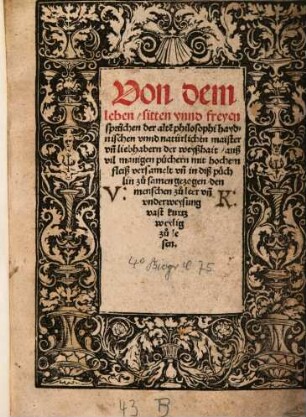 Von dem
leben / sitten vnnd freyen
sprüchen der altē philosophi hayd-
nischen vnnd natürlichen maister
vñ liebhabern der weyßhait / auß
vil manigen püchern mit hochem
fleiß versamelt vñ in diß püch
lin zů samen gezogen / den
V: menschen zů leer vñ K:
vnderweysung
vast kurtz
weylig
zů le
sen.
4° 75
43 B